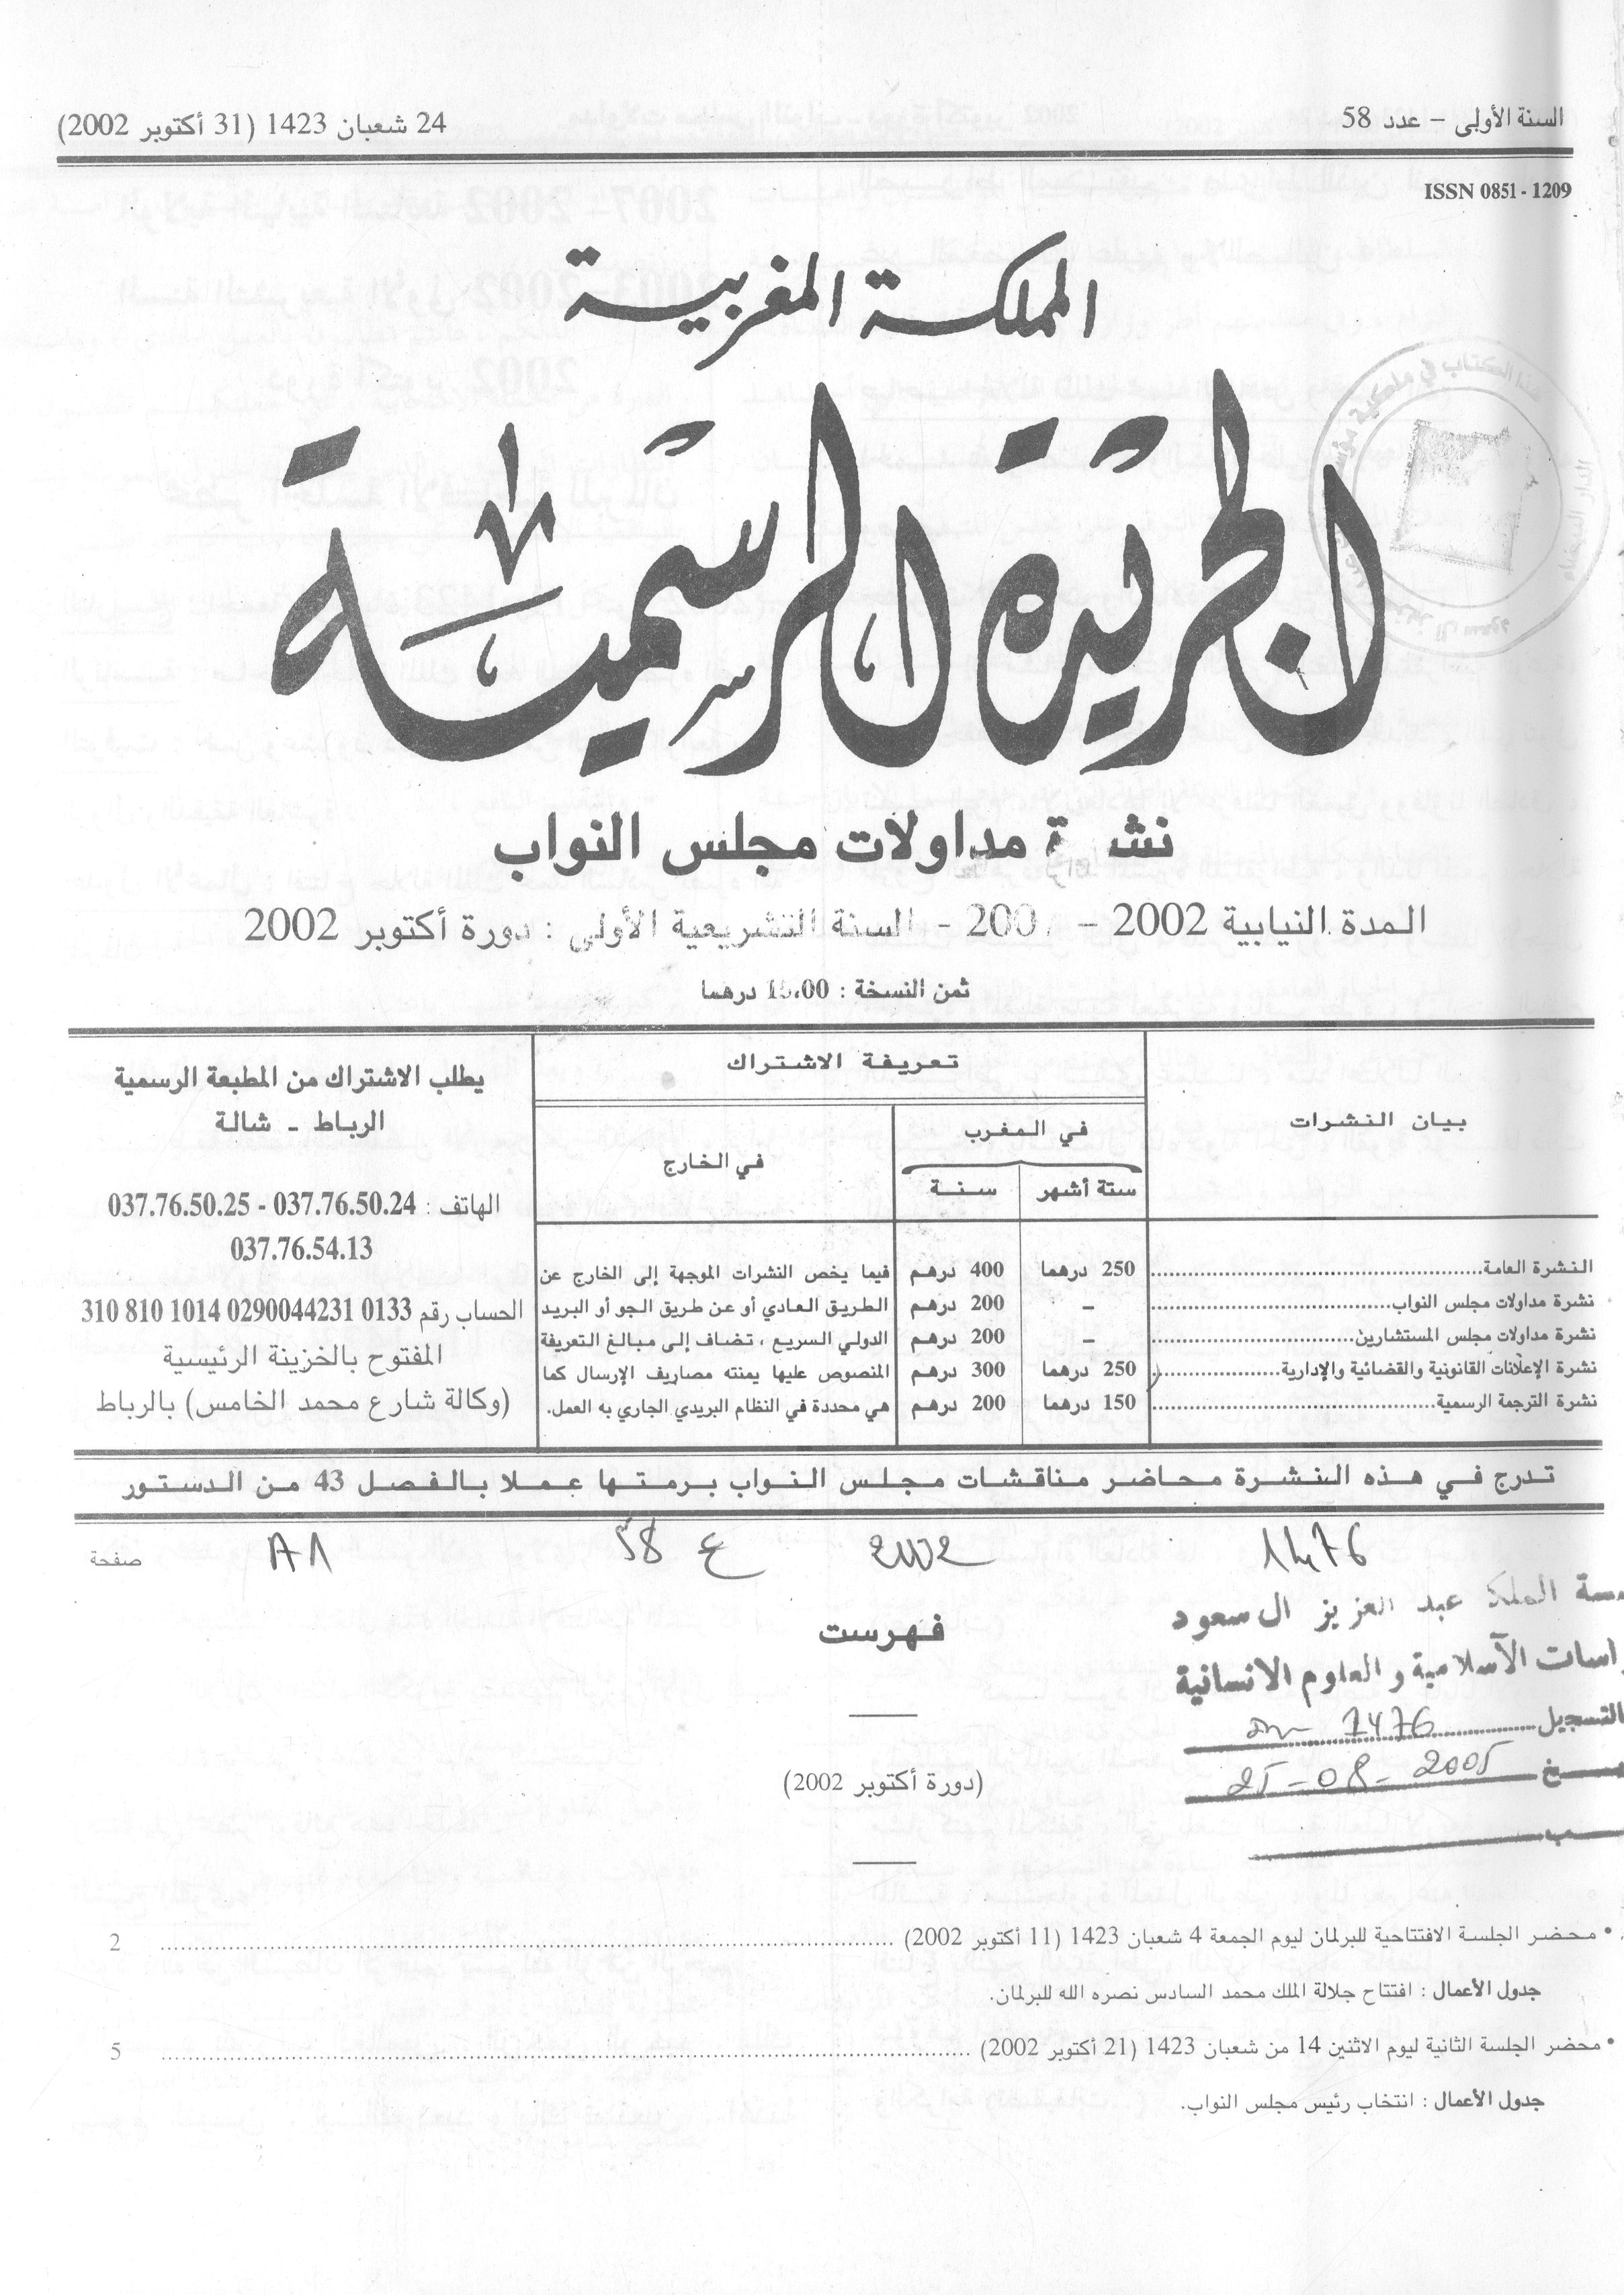 السنة الأولى – عدد 58
24 شعبان 1423 (31 أكتوبر 2002)
ISSN 0851 - 1209
المملكة المغربية
الجريدة الرسمية
نشرة مداولات مجلس النواب
المدة النيابية 2002 – 200 - السنة التشريعية الأولى : دورة أكتوبر 2002
ثمن النسخة : 15،00 درهما
بيان النشرات
تعريفة الاشتراك
في المغرب
في الخارج
ستة أشهر
سنة
النشرة العامة 250 درهما 400 درهم
نشرة مداولات مجلس النواب – 200 درهم
نشرة مداولات مجلس المستشارين – 200 درهم
نشرة الإعلانات القانونية والقضائية والإدارية 250 درهما 300 درهم
نشرة الترجمة الرسمية 150 درهما 200 درهم
فيما يخص النشرات الموجهة إلى الخارج عن
الطريق العادي أو عن طريق الجو أو البريد
الدولي السريع ، تضاف إلى مبالغ التعريفة
المنصوص عليها يمنته مصاريف الإرسال كما
هي محددة في النظام البريدي الجاري به العمل.
يطلب الاشتراك من المطبعة الرسمية
الرباط - شالة
الهاتف : 037.76.50.24 - 037.76.50.25
037.76.54.13
الحساب رقم 0133 0290044231 1014 810 310
المفتوح بالخزينة الرئيسية
(وكالة شارع محمد الخامس) بالرباط
تدرج في هذه النشرة محاضر مناقشات مجلس النواب برمتها عملا بالفصل 43 من الدستور
1476 2002 ع 58
صفحة
الملك عبد العزيز ال سعود
الاسلامية والعلوم الانسانية
التسجيل 1476
25-08-2005
فهرست
(دورة أكتوبر 2002)
• محضر الجلسة الافتتاحية للبرلمان ليوم الجمعة 4 شعبان 1423 (11 أكتوبر 2002) 2
جدول الأعمال : افتتاح جلالة الملك محمد السادس نصره الله للبرلمان.
• محضر الجلسة الثانية ليوم الاثنين 14 من شعبان 1423 (21 أكتوبر 2002) 5
جدول الأعمال : انتخاب رئيس مجلس النواب.